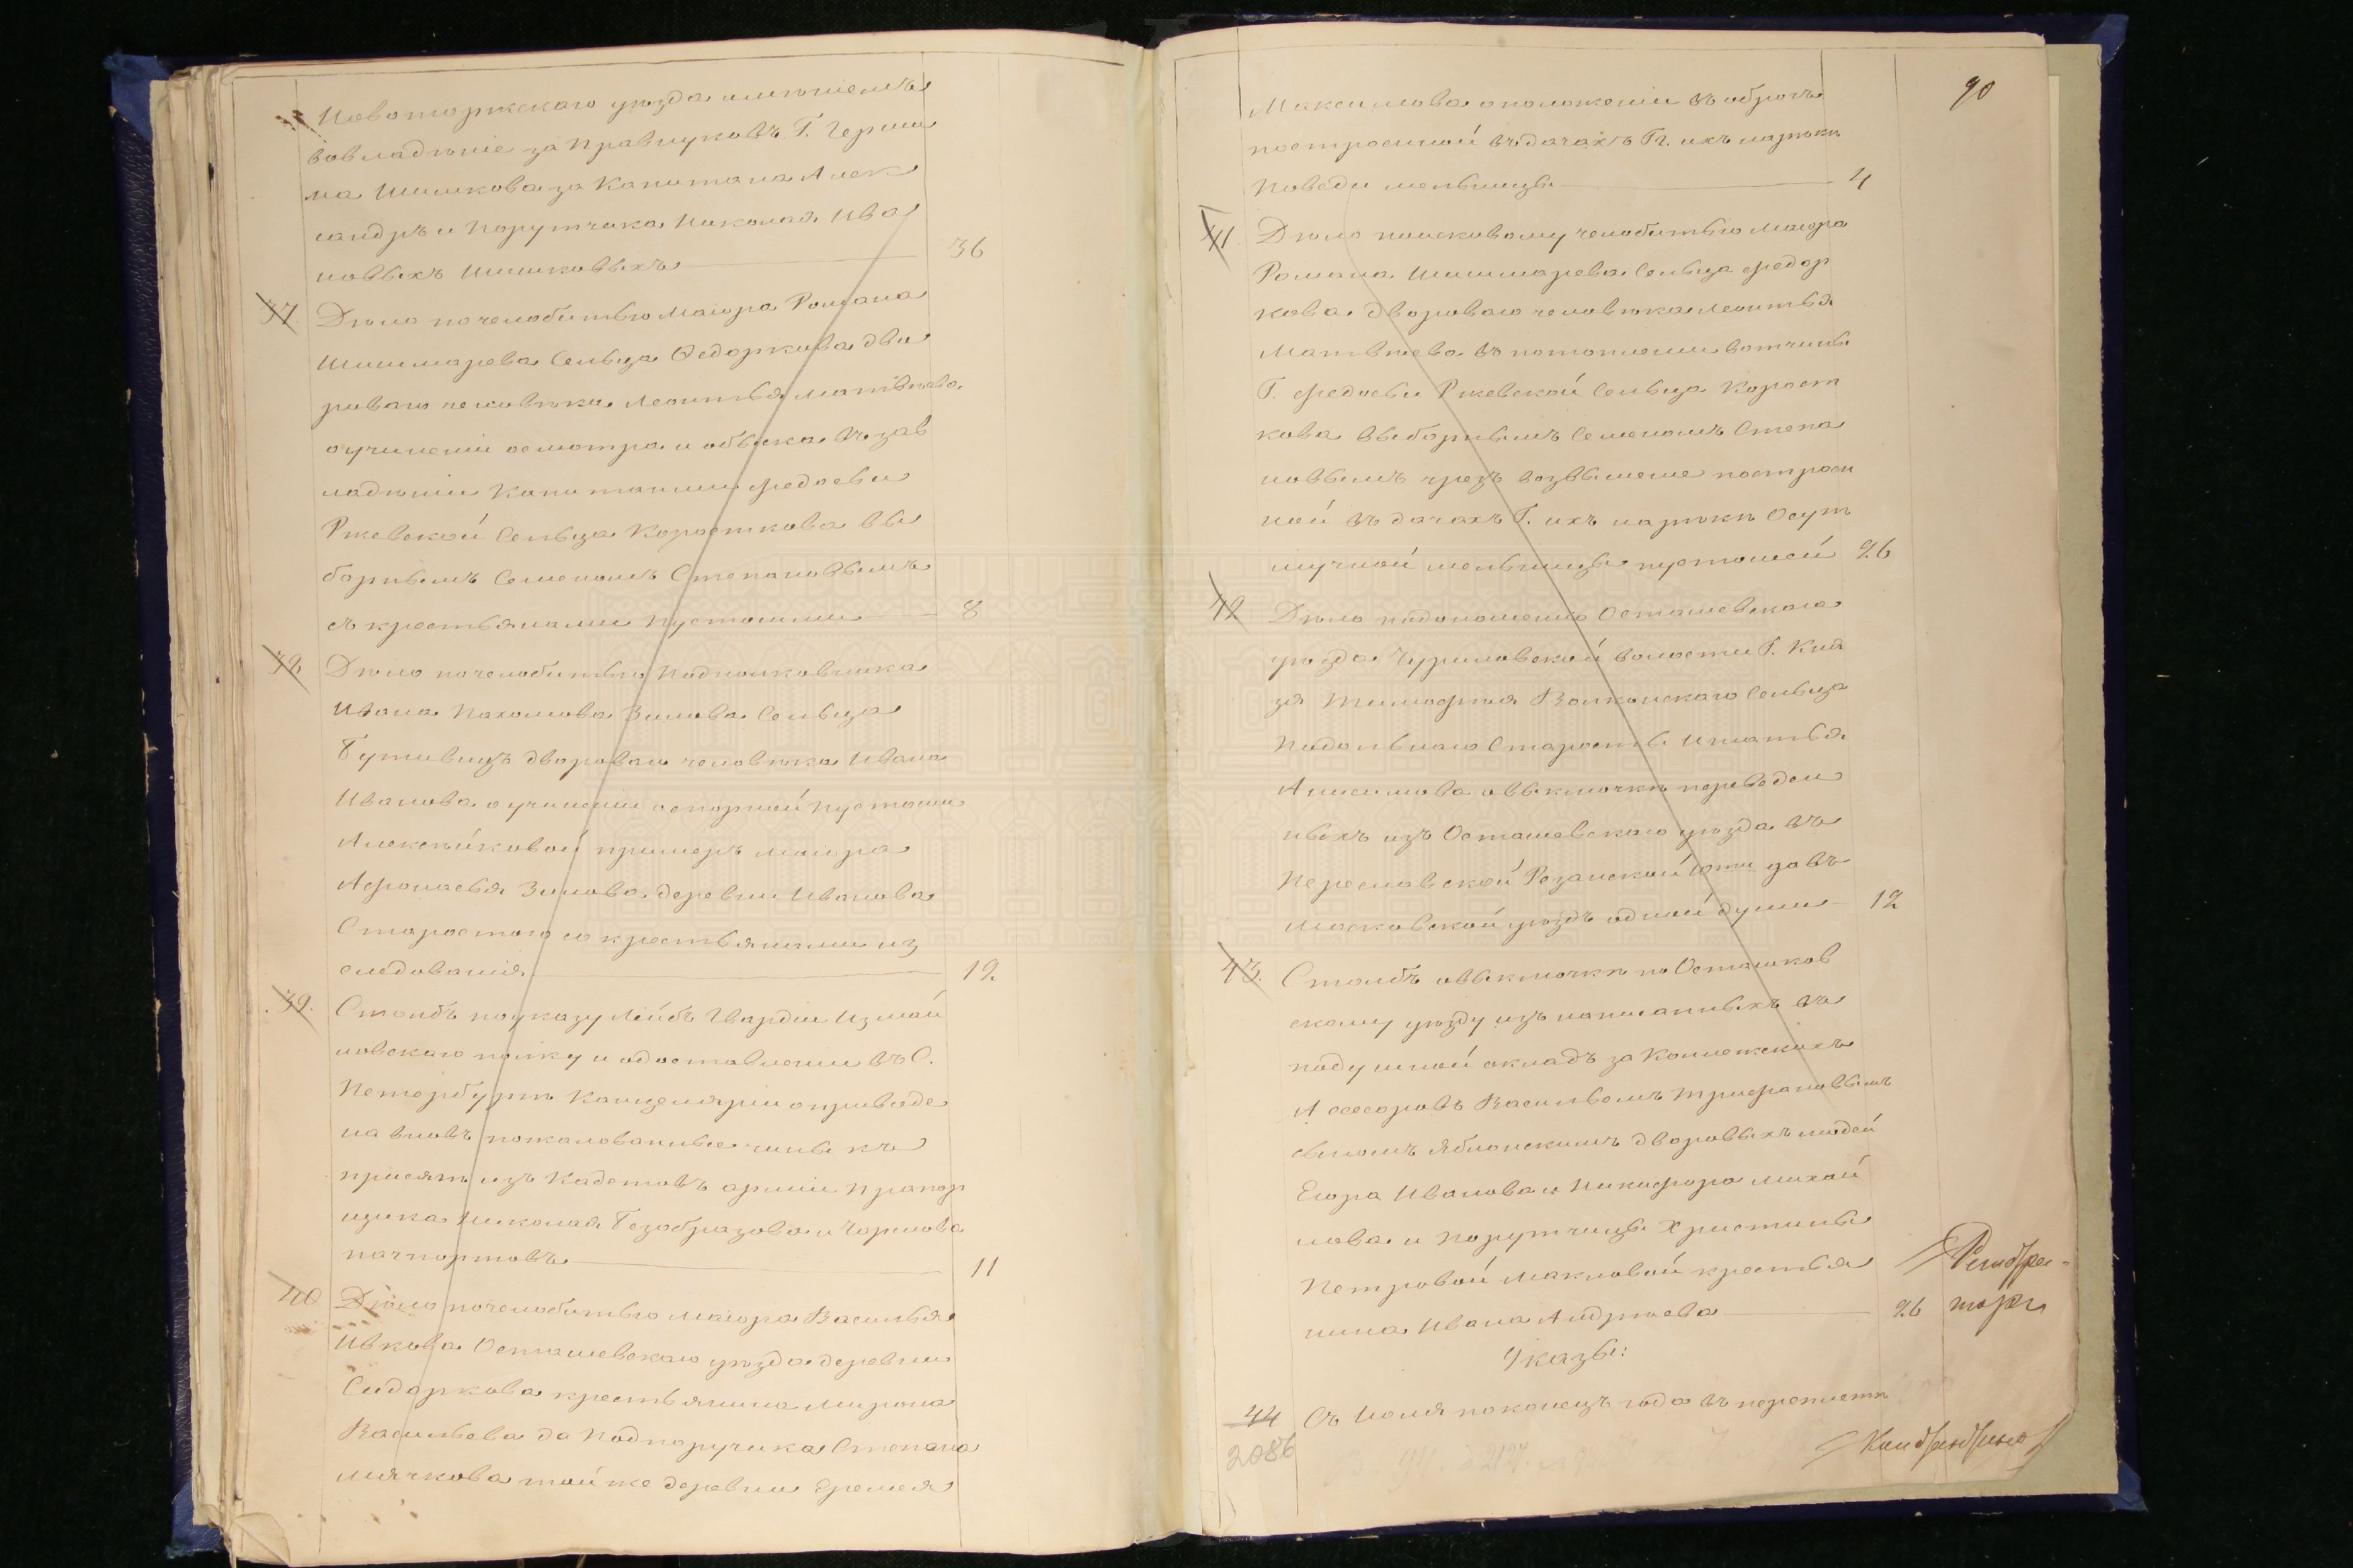 Новоторжскаго уѣзда имѣніемъ
во владѣніе за правнуковъ Г. Герши
ма Шишкова за Капитана Алек
сандръ и Порутчика Николая Ива
новыхъ Шишковыхъ 36
37 Дѣло по челобитью Маіора Романа
Шишмарева Сельца Ѳедоркова дво
роваго человѣка Леонтья Матвѣева
о учиненіи осмотра и обыска въ зав
ладѣніи Капитанши Ѳедосьи
Ржевской Сельца Коросткова вы
борнымъ Семеномъ Степановымъ
съ крестьянами пустошми 8
38 Дѣло по челобитью Подполковника
Ивана Пахомова Зинова Сельца
Бутивицъ двороваго человѣка Ивана
Иванова о учиненіи спорной пустоши
Алексѣйковой примеръ маіора
Афонасья Зинова деревни Иванова
Старостою со крестьянами из
следования 12
39. Столбъ по указу Лейбъ Гвардіи Измай
ловскаго полку и одоставлении въ С.
Петербургъ Канцелярии о приводе
на вновъ пожалованные чины къ
присягѣ изъ Кадетовъ армии Прапор
щика Николая Безобразова и Чорнова
пачпортовъ 11
40 Дѣло по челобитью маіора Василья
Ивкова Осташевскаго уѣзда деревни
Сидоркова крестьянина Мирона
Васильева да Подпоручика Степана
Мячкова той же деревни Еремея
90
Максимова о положеніи въ оброкъ
построенной въ дачахъ Гг. ихъ на рѣкѣ
Поведи мельницы 4
41 Дѣло по исковому челобитью Маіора
Романа Шишмарева Сельца Федор
кова двороваго человѣка Леонтья
Матвѣева въ потопленіи вотчины
Г. Федосьи Ржевской Сельца Корост
кова выборнымъ Семеномъ Степа
новымъ чрезъ возвышеніе построен
ной въ дачахъ Г. ихъ на рѣкѣ Осугѣ
мучной мельницы пустошей 26
42 Дѣло по доношенію Осташевскаго
уѣзда Чуриловской волости Г. Кня
зя Тимофѣя Волконскаго Сельца
Подольнаго Старосты Игнатья
Анисимова о выключкѣ переведен
ныхъ изъ Осташевскаго уѣзда въ
Переславской Резанской да въ
Московской уѣздъ одной души 12
43. Столбъ о выключкѣ по Осташков
скому уѣзду изъ написанныхъ въ
подушной окладъ за Коллежскихъ
Ассесоровъ Васильемъ Трифановымъ
сыномъ Яблонскимъ дворовыхъ людей
Егора Иванова и Никифора Михай
лова и Порутчицы Христины
Петровой Маковой крестья
нина Ивана Андрѣева 26
Указы:
44 Съ Іюля по конецъ года въ переплетѣ
2086